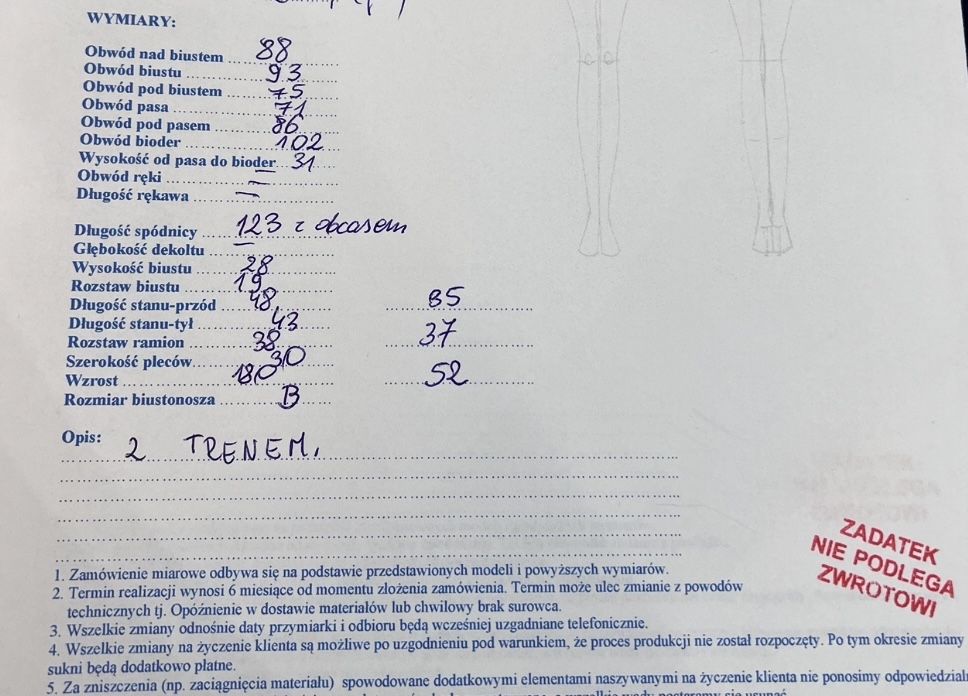 WYMIARY:
Obwód nad biustem 88
Obwód biustu 93
Obwód pod biustem 75
Obwód pasa 71
Obwód pod pasem 86
Obwód bioder 102
Wysokość od pasa do bioder 31
Obwód ręki —
Długość rękawa —
Długość spódnicy 123 z obcasem
Głębokość dekoltu —
Wysokość biustu 28
Rozstaw biustu 19
Długość stanu-przód 48 85
Długość stanu-tył 43
Rozstaw ramion 38 37
Szerokość pleców 30
Wzrost 180 52
Rozmiar biustonosza B
Opis: Z TRENEM.
ZADATEK
NIE PODLEGA
ZWROTOWI
1. Zamówienie miarowe odbywa się na podstawie przedstawionych modeli i powyższych wymiarów.
2. Termin realizacji wynosi 6 miesiące od momentu złożenia zamówienia. Termin może ulec zmianie z powodów
technicznych tj. Opóźnienie w dostawie materiałów lub chwilowy brak surowca.
3. Wszelkie zmiany odnośnie daty przymiarki i odbioru będą wcześniej uzgadniane telefonicznie.
4. Wszelkie zmiany na życzenie klienta są możliwe po uzgodnieniu pod warunkiem, że proces produkcji nie został rozpoczęty. Po tym okresie zmiany
sukni będą dodatkowo płatne.
5. Za zniszczenia (np. zaciągnięcia materiału) spowodowane dodatkowymi elementami naszywanymi na życzenie klienta nie ponosimy